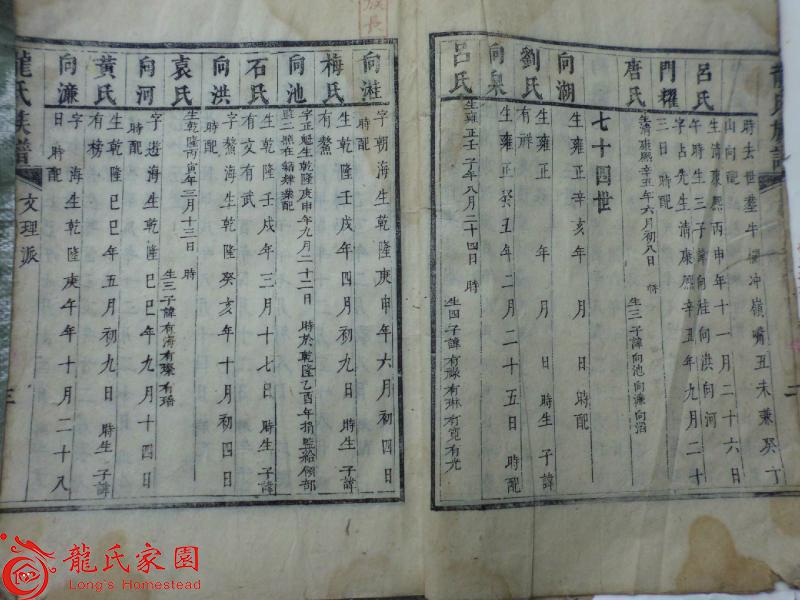 時去世塟牛
冲嶺嘴丑未兼癸丁
山向配
呂氏
生清康熙丙申年十一月二十六日
午時生三子諱向桂向洪向河
門耀
字占先生清康熙辛丑年九月二十
三日時配
唐氏
生清康熙辛丑年六月初八日
時
生三子諱向池向濂向滔
七十四世
向湖
生雍正辛亥年月日時配
劉氏
生雍正年月日時生子諱
有祥
向泉
生雍正癸丑年二月二十五日時配
呂氏
生雍正壬子年八月二十四日時
生四子諱有
有琳有寬有光
向漄
字朝海生乾隆庚申年六月初四日
時配
梅氏
生乾隆壬戌年四月初九日時生子諱
有鰲
向池
字正魁生乾隆庚申年九月二十二日時於乾隆乙酉年捐監給領部
監二照在籍肄業配
石氏
生乾隆壬戌年三月十七日時生子諱
有文有武
向洪
字鰲海生乾隆癸亥年十月初四日
時配
袁氏
生乾隆丙寅年三月十三日時
生三子諱有海有
有瑃
向河
字逰海生乾隆巳巳年九月十四日
時配
黃氏
生乾隆巳巳年五月初九日時生子諱
有榜
向濂
字海生乾隆庚午年十月二十八
日時配
龍氏族譜
文理派
三
二
龍氏家園
Long's Homestead